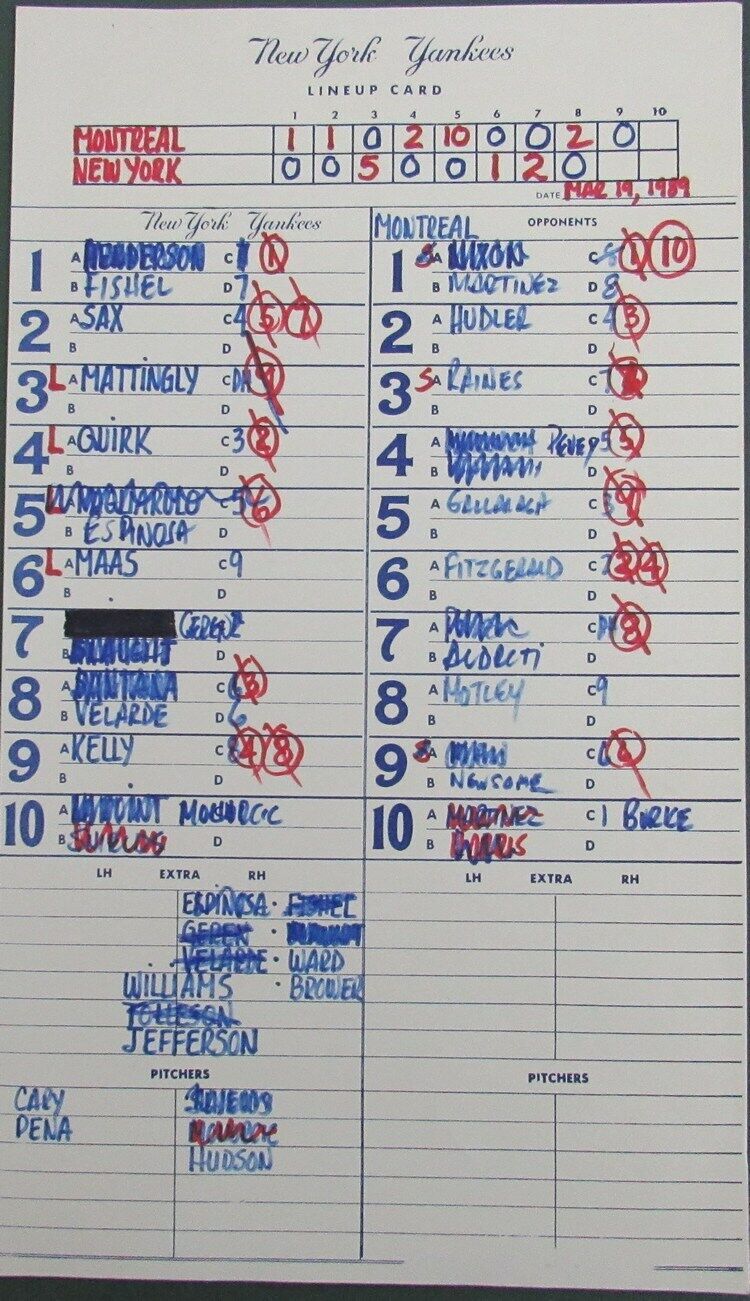 New York Yankees
LINEUP CARD
1 2 3 4 5 6 7 8 9 10
MONTREAL 1 1 0 2 10 0 0 2 0
NEW YORK 0 0 5 0 0 1 2 0
DATE MAR 19, 1989
New York Yankees
1 A HENDERSON C 1
B FISHEL D 7
2 A SAX C 4 5 7
B D
3 L A MATTINGLY C DH
B D
4 L A QUIRK C 3 2
B D
5 A C 5 6
B ESPINOSA D
6 L A MAAS C 9
B D
7 GEREN 2
B D
8 A SANTANA C 6 3
B VELARDE D 6
9 A KELLY C 8 4 8
B D
10 A MOHORCIC
B D
LH EXTRA RH
ESPINOSA · FISHEL
GEREN ·
VELARDE · WARD
WILLIAMS · BROWER
TOLLESON
JEFFERSON
PITCHERS
CARY
PENA
HUDSON
MONTREAL OPPONENTS
1 S A NIXON C 8 1 10
B MARTINEZ D 8
2 A HUDLER C 4 3
B D
3 S A RAINES C 7
B D
4 A C 5 5
B D
5 A C 3
B D
6 A FITZGERALD C 2 2 4
B D
7 A C DH 8
B ALDRETI D
8 A MOTLEY C 9
B D
9 S A C 6
B NEWSOME D
10 A MARTINEZ C 1 BURKE
B D
LH EXTRA RH
PITCHERS